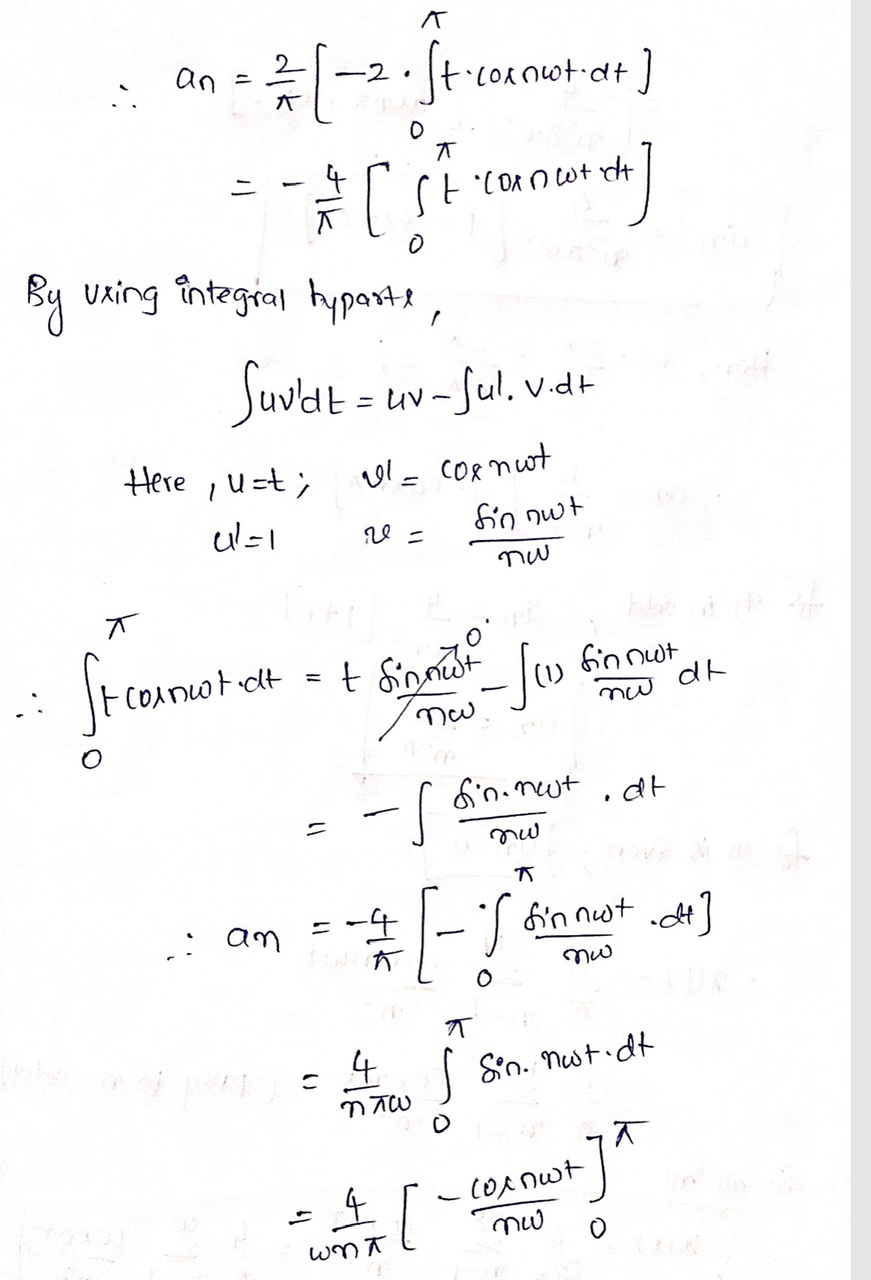 ∴ an = 2/π [ -2 · ∫₀^π t·cosnωt·dt ]
= - 4/π [ ∫₀^π t·cosnωt dt ]
By using integral byparts,
∫uv'dt = uv - ∫u'. v.dt
Here , u=t; v' = cosnωt
u'=1 v = sin nωt / nω
∴ ∫₀^π t cosnωt.dt = t sinnωt / nω → 0 - ∫(1) sinnωt / nω dt
= - ∫ sin.nωt / nω . dt
∴ an = -4/π [ - ∫₀^π sinnωt / nω .dt ]
= 4/nπω ∫₀^π sin. nωt.dt
= 4/ωnπ [ - cosnωt / nω ]₀^π